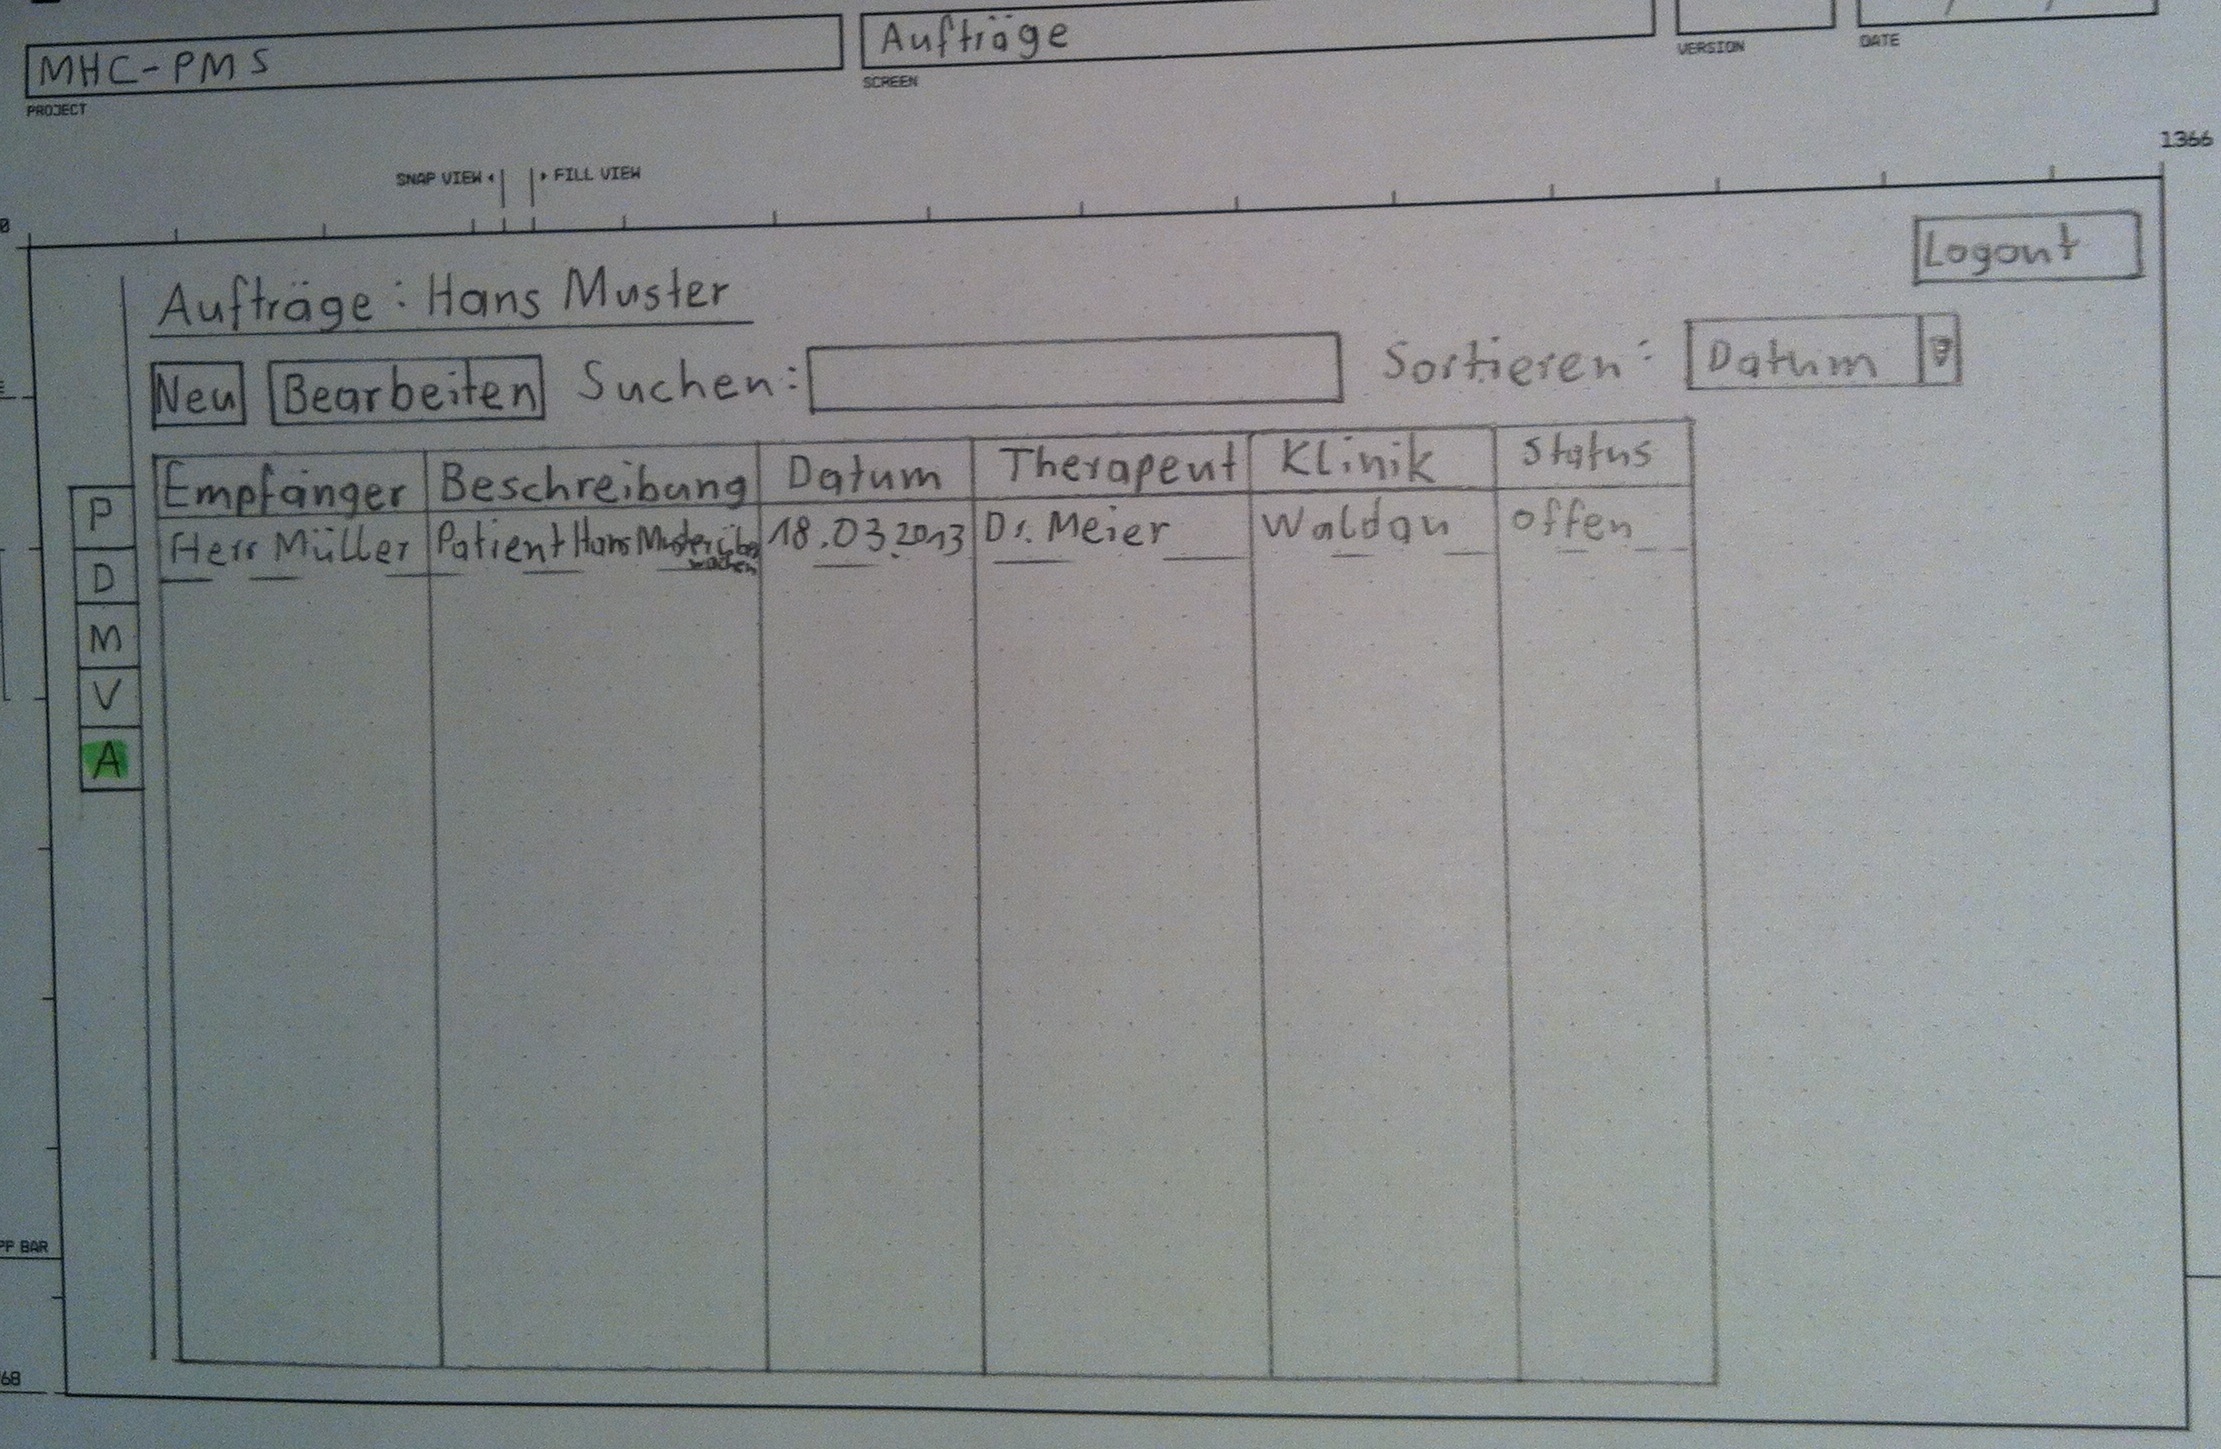 MHC-PMS
Aufträge
PROJECT
SCREEN
VERSION
DATE
1366
SNAP VIEW
FILL VIEW
0
Logout
Aufträge: Hans Muster
Neu
Bearbeiten
Suchen:
Sortieren:
Datum
Empfänger
Beschreibung
Datum
Therapeut
Klinik
Status
Herr Müller
Patient Hans Muster über
wachen
18.03.2013
Dr. Meier
Waldau
offen
P
D
M
V
A
PP BAR
68